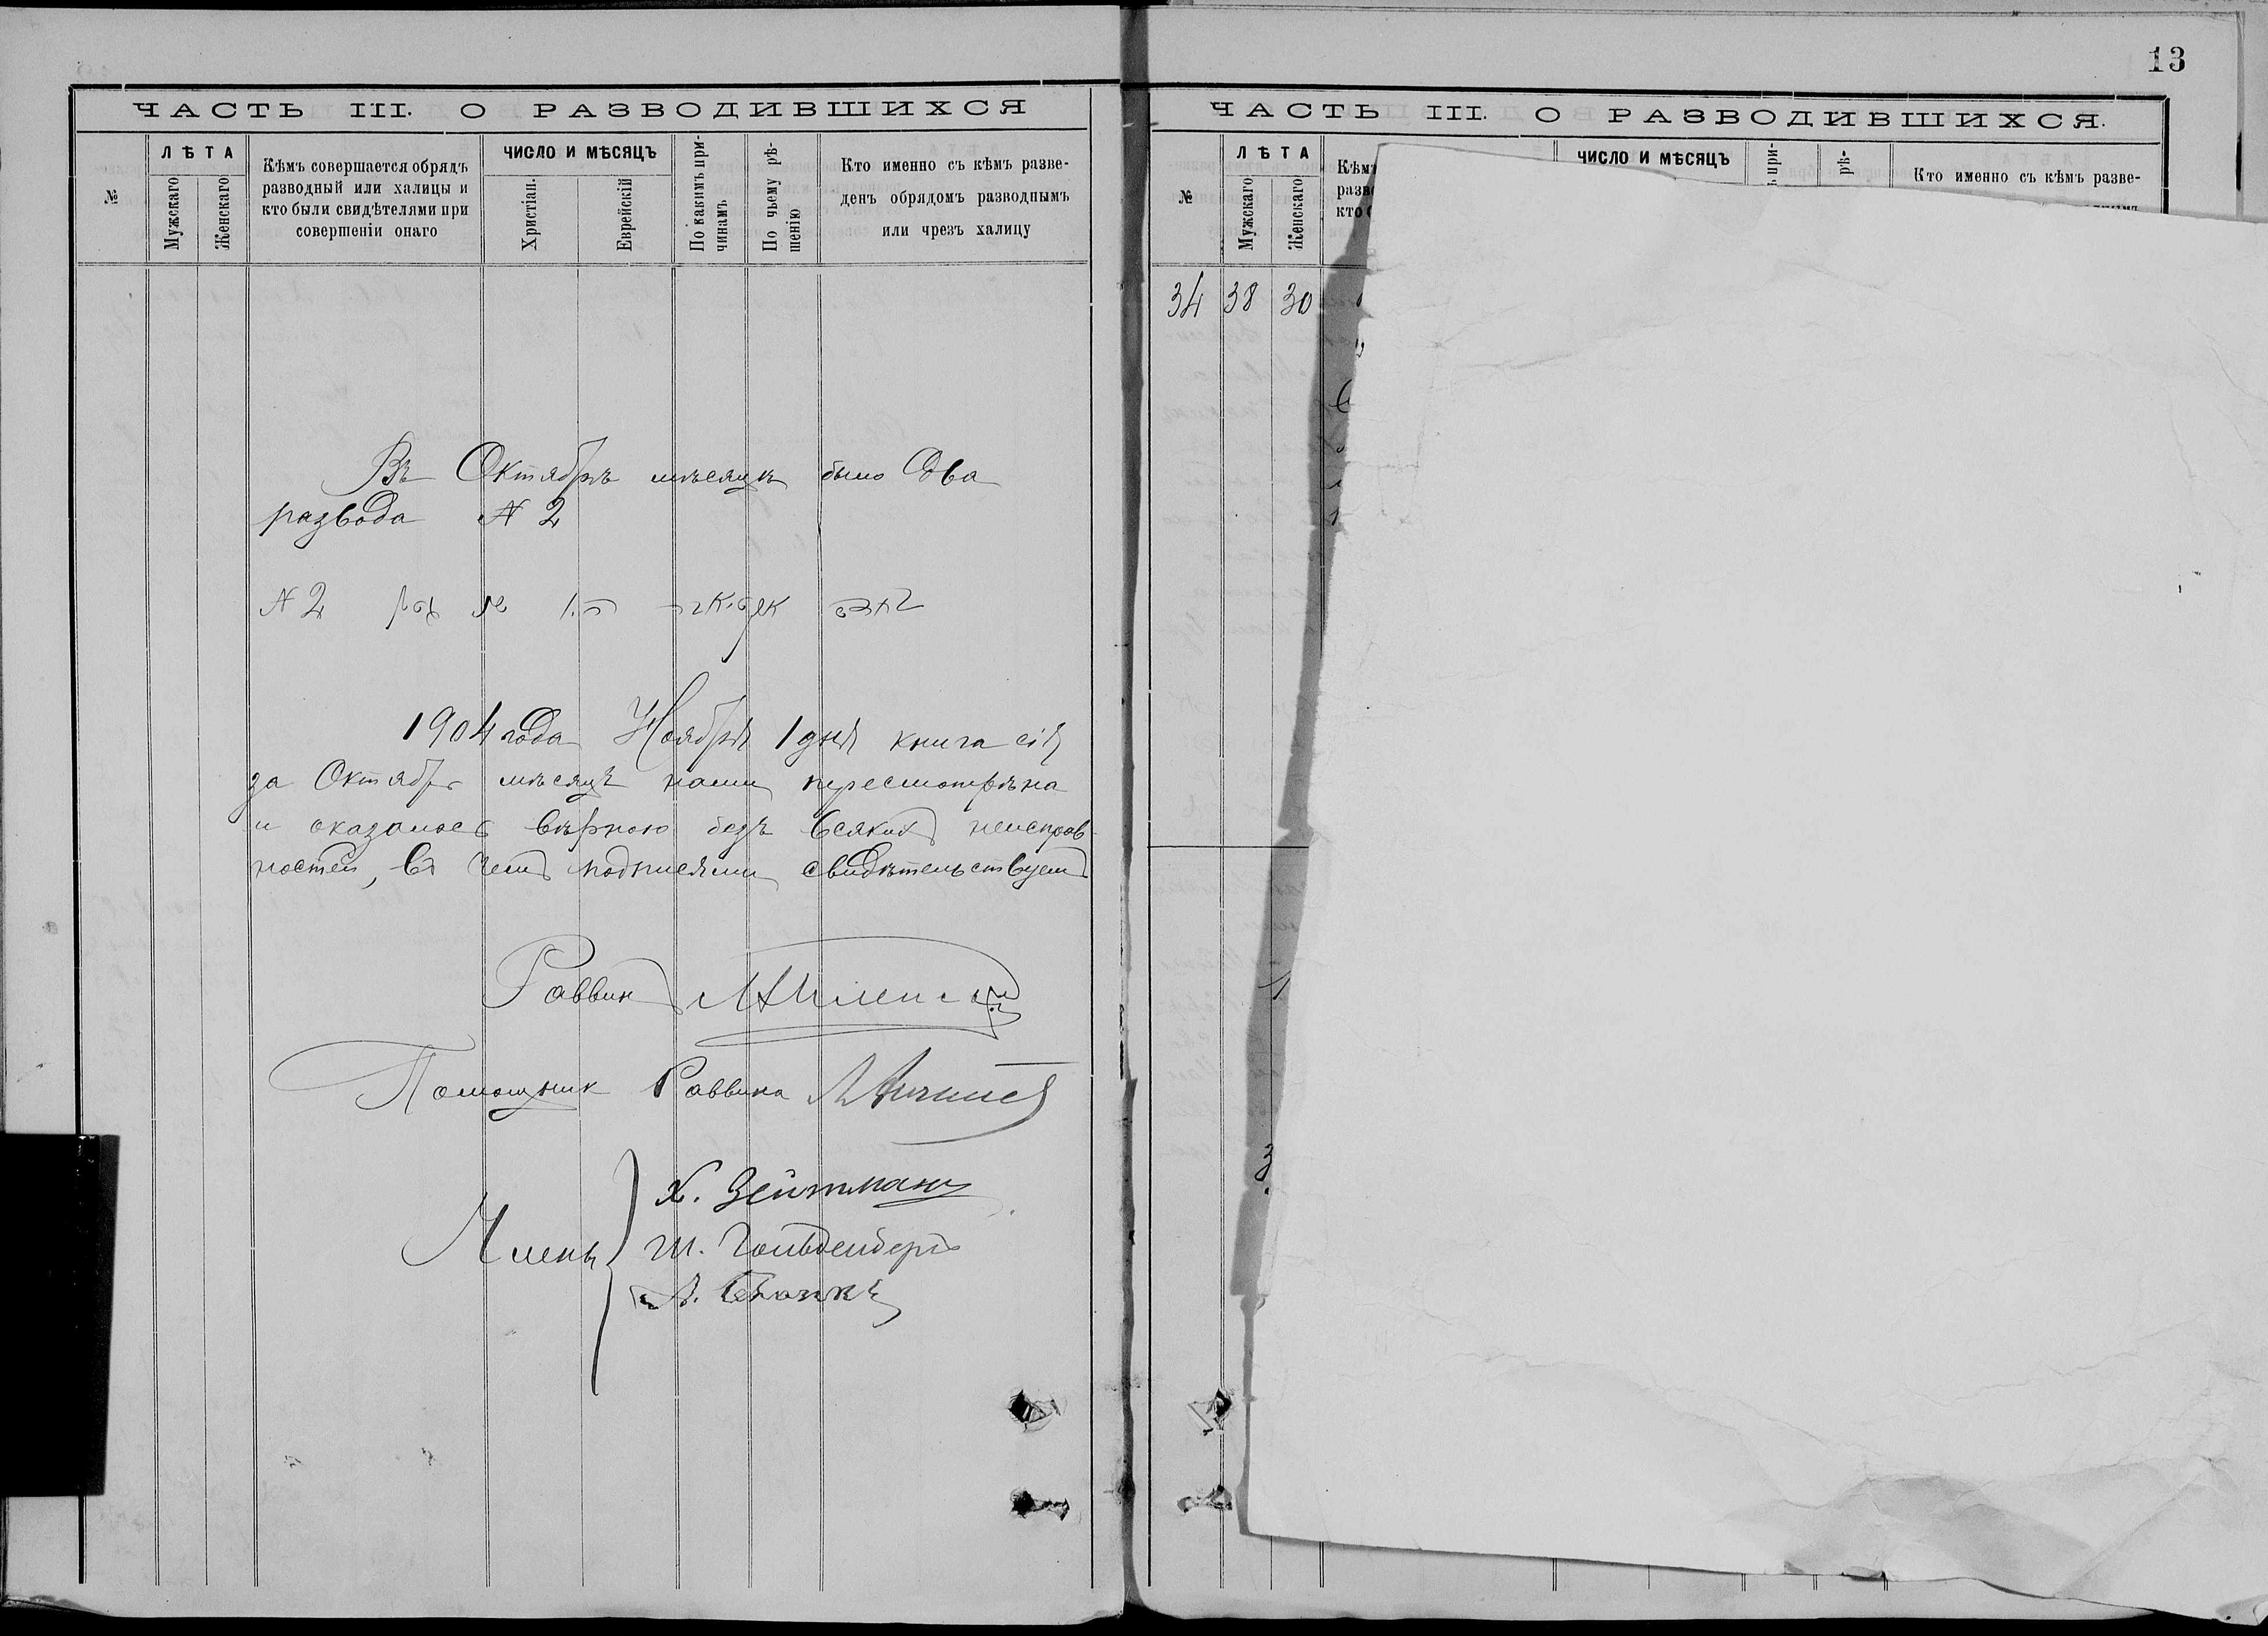 ЧАСТЬ III. О РАЗВОДИВШИХСЯ
№
ЛѢТА
Мужскаго
Женскаго
Кѣмъ совершается обрядъ
разводный или халицы и
кто были свидѣтелями при
совершеніи онаго
ЧИСЛО И МѢСЯЦЪ
Христіан.
Еврейскій
По какимъ при-
чинамъ
По чьему рѣ-
шенію
Кто именно съ кѣмъ разве-
денъ обрядомъ разводнымъ
или чрезъ халицу
Въ Октябрѣ мѣсяцѣ было два
развода № 2
№ 2
1904 года Ноября 1 дня книга сія
за Октябрь мѣсяцъ нами пересмотрѣна
и оказалось вѣрною безъ всякихъ неисправ-
ностей, въ чемъ подписями свидѣтельствуемъ
Раввинъ
Помощник Раввина
Члены
Х. Зейтманъ
Ш. Гольденбергъ
13
ЧАСТЬ III. О РАЗВОДИВШИХСЯ.
№
ЛѢТА
Мужскаго
Женскаго
Кѣмъ
разв
кто
ЧИСЛО И МѢСЯЦЪ
ъ при-
рѣ-
Кто именно съ кѣмъ разве-
34 38 30